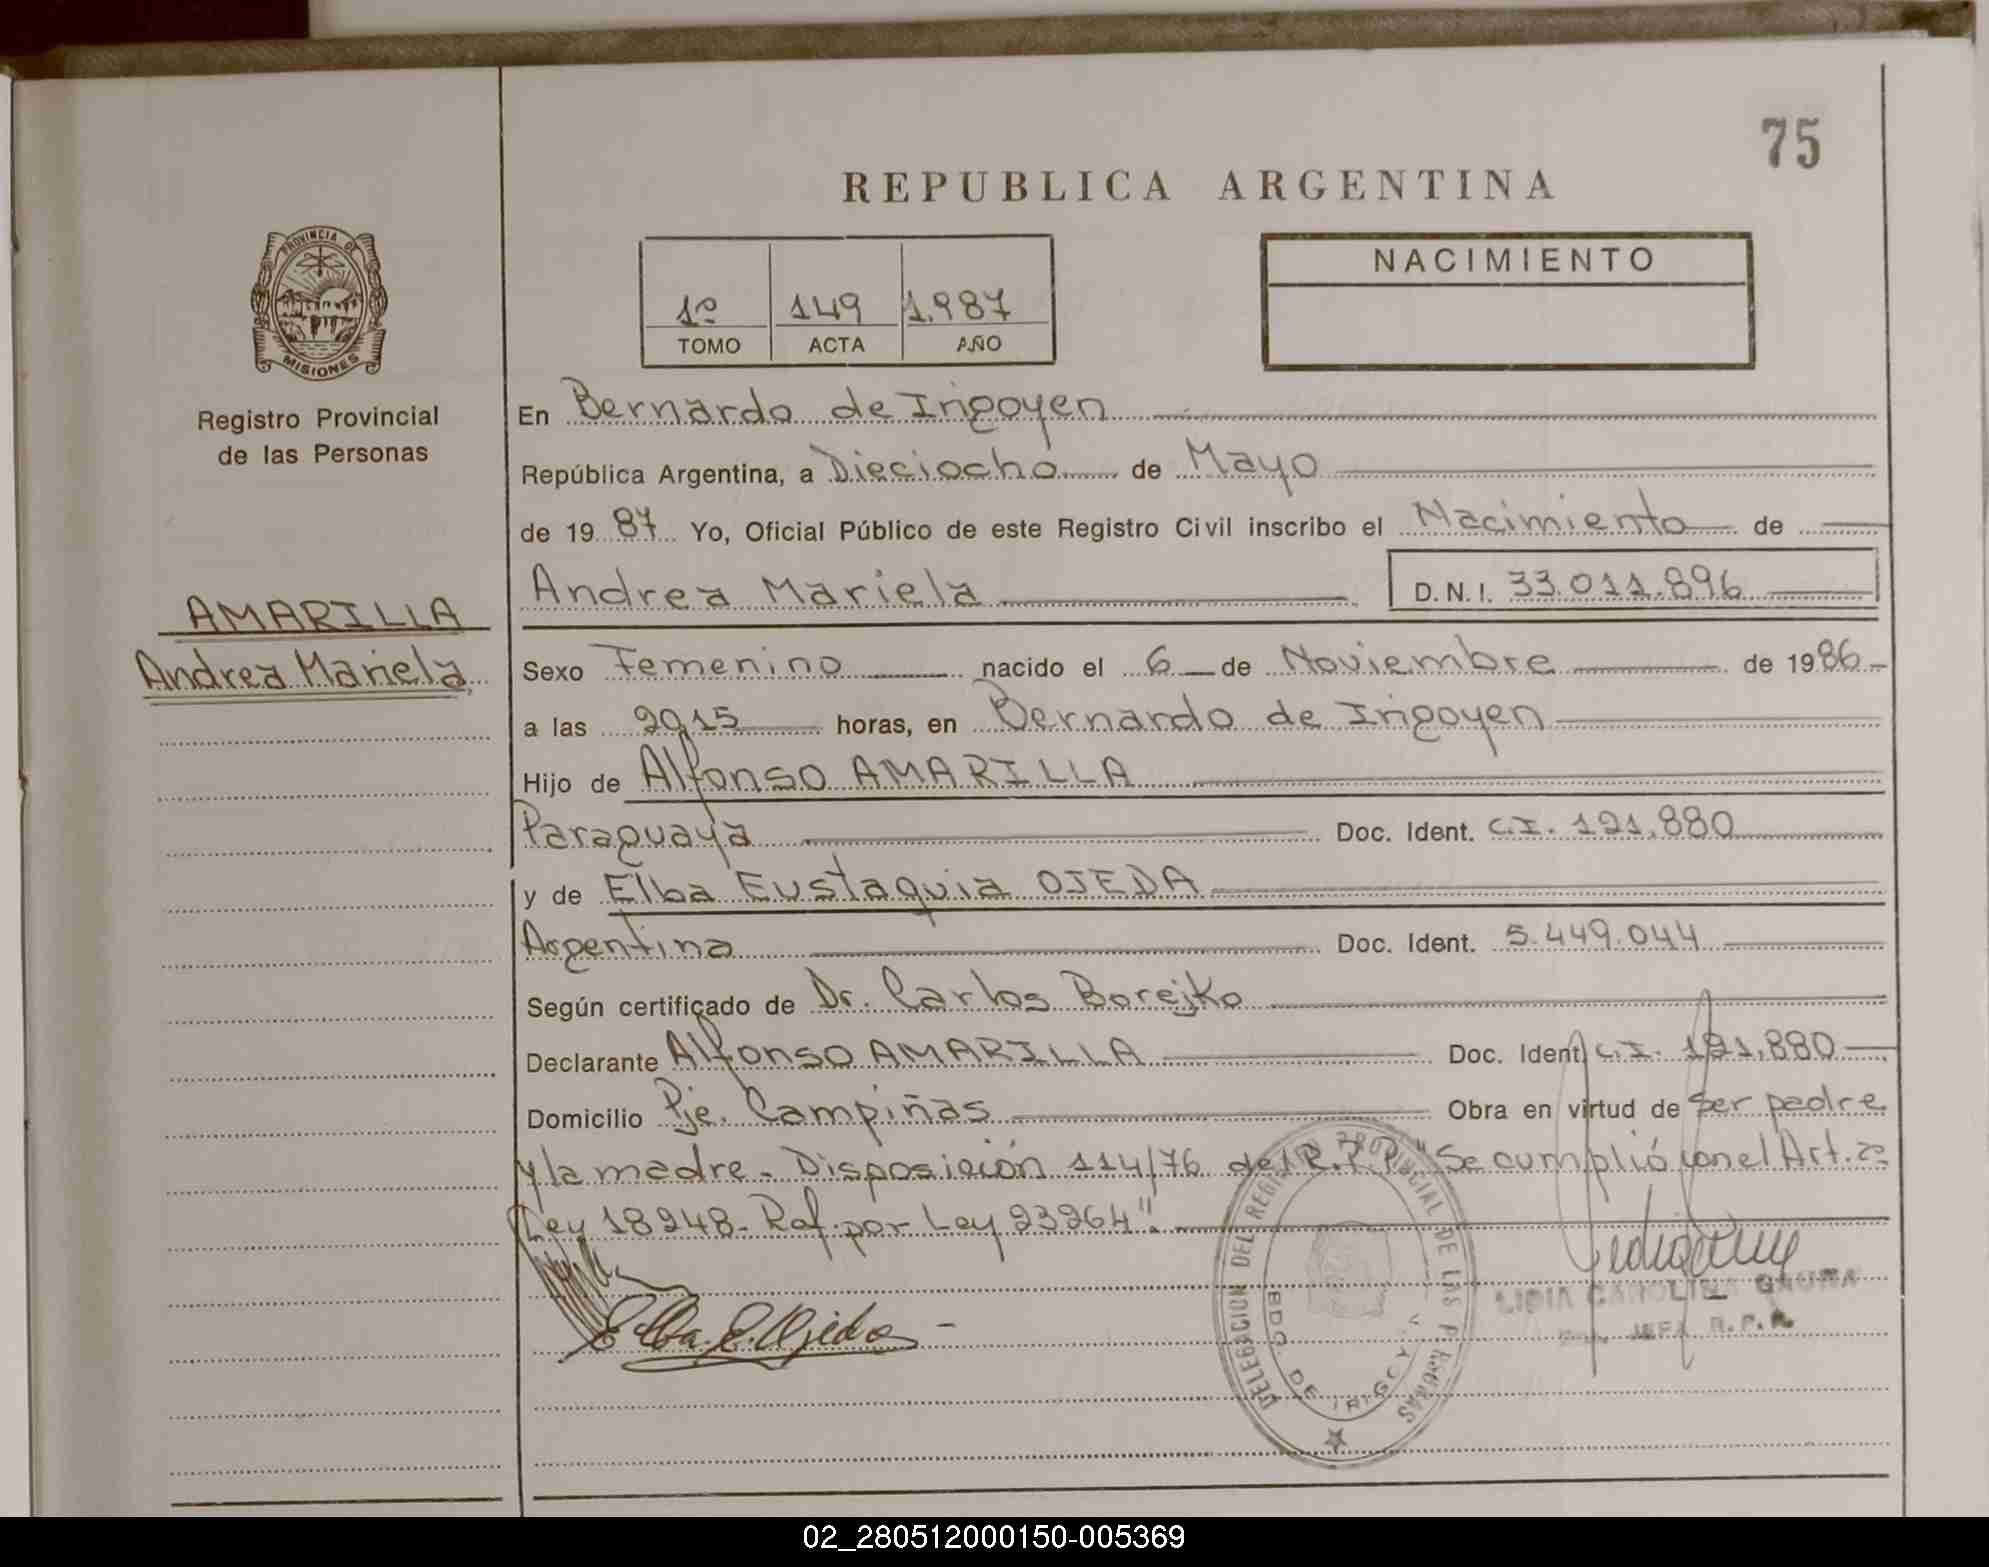 75
REPUBLICA ARGENTINA
PROVINCIA DE
MISIONES
Registro Provincial
de las Personas
NACIMIENTO
1º 149 1.987
TOMO ACTA AÑO
En Bernardo de Irigoyen
República Argentina, a Dieciocho de Mayo
de 19 87 Yo, Oficial Público de este Registro Civil inscribo el Nacimiento de
Andrea Mariela D.N.I. 33.011.896
AMARILLA
Andrea Mariela
Sexo Femenino nacido el 6 de Noviembre de 1986
a las 2015 horas, en Bernardo de Irigoyen
Hijo de Alfonso AMARILLA
Paraguaya Doc. Ident. C.I. 121.880
y de Elba Eustaquia OJEDA
Argentina Doc. Ident. 5.449.044
Según certificado de Dr. Carlos Borejko
Declarante Alfonso AMARILLA Doc. Ident. C.I. 121.880
Domicilio Pje. Campiñas Obra en virtud de Ser padre
y la madre - Disposición 114/76 del R.P.P. "Se cumplió con el Art. 2º
Ley 18248 - Ref. por Ley 23264".
Elba E. Ojeda
DELEGACION DEL REGISTRO PROVINCIAL DE LAS PERSONAS
BDO. DE IRIGOYEN
LIDIA CAROLINA GAUNA
JEFA R.P.P.
02_280512000150-005369